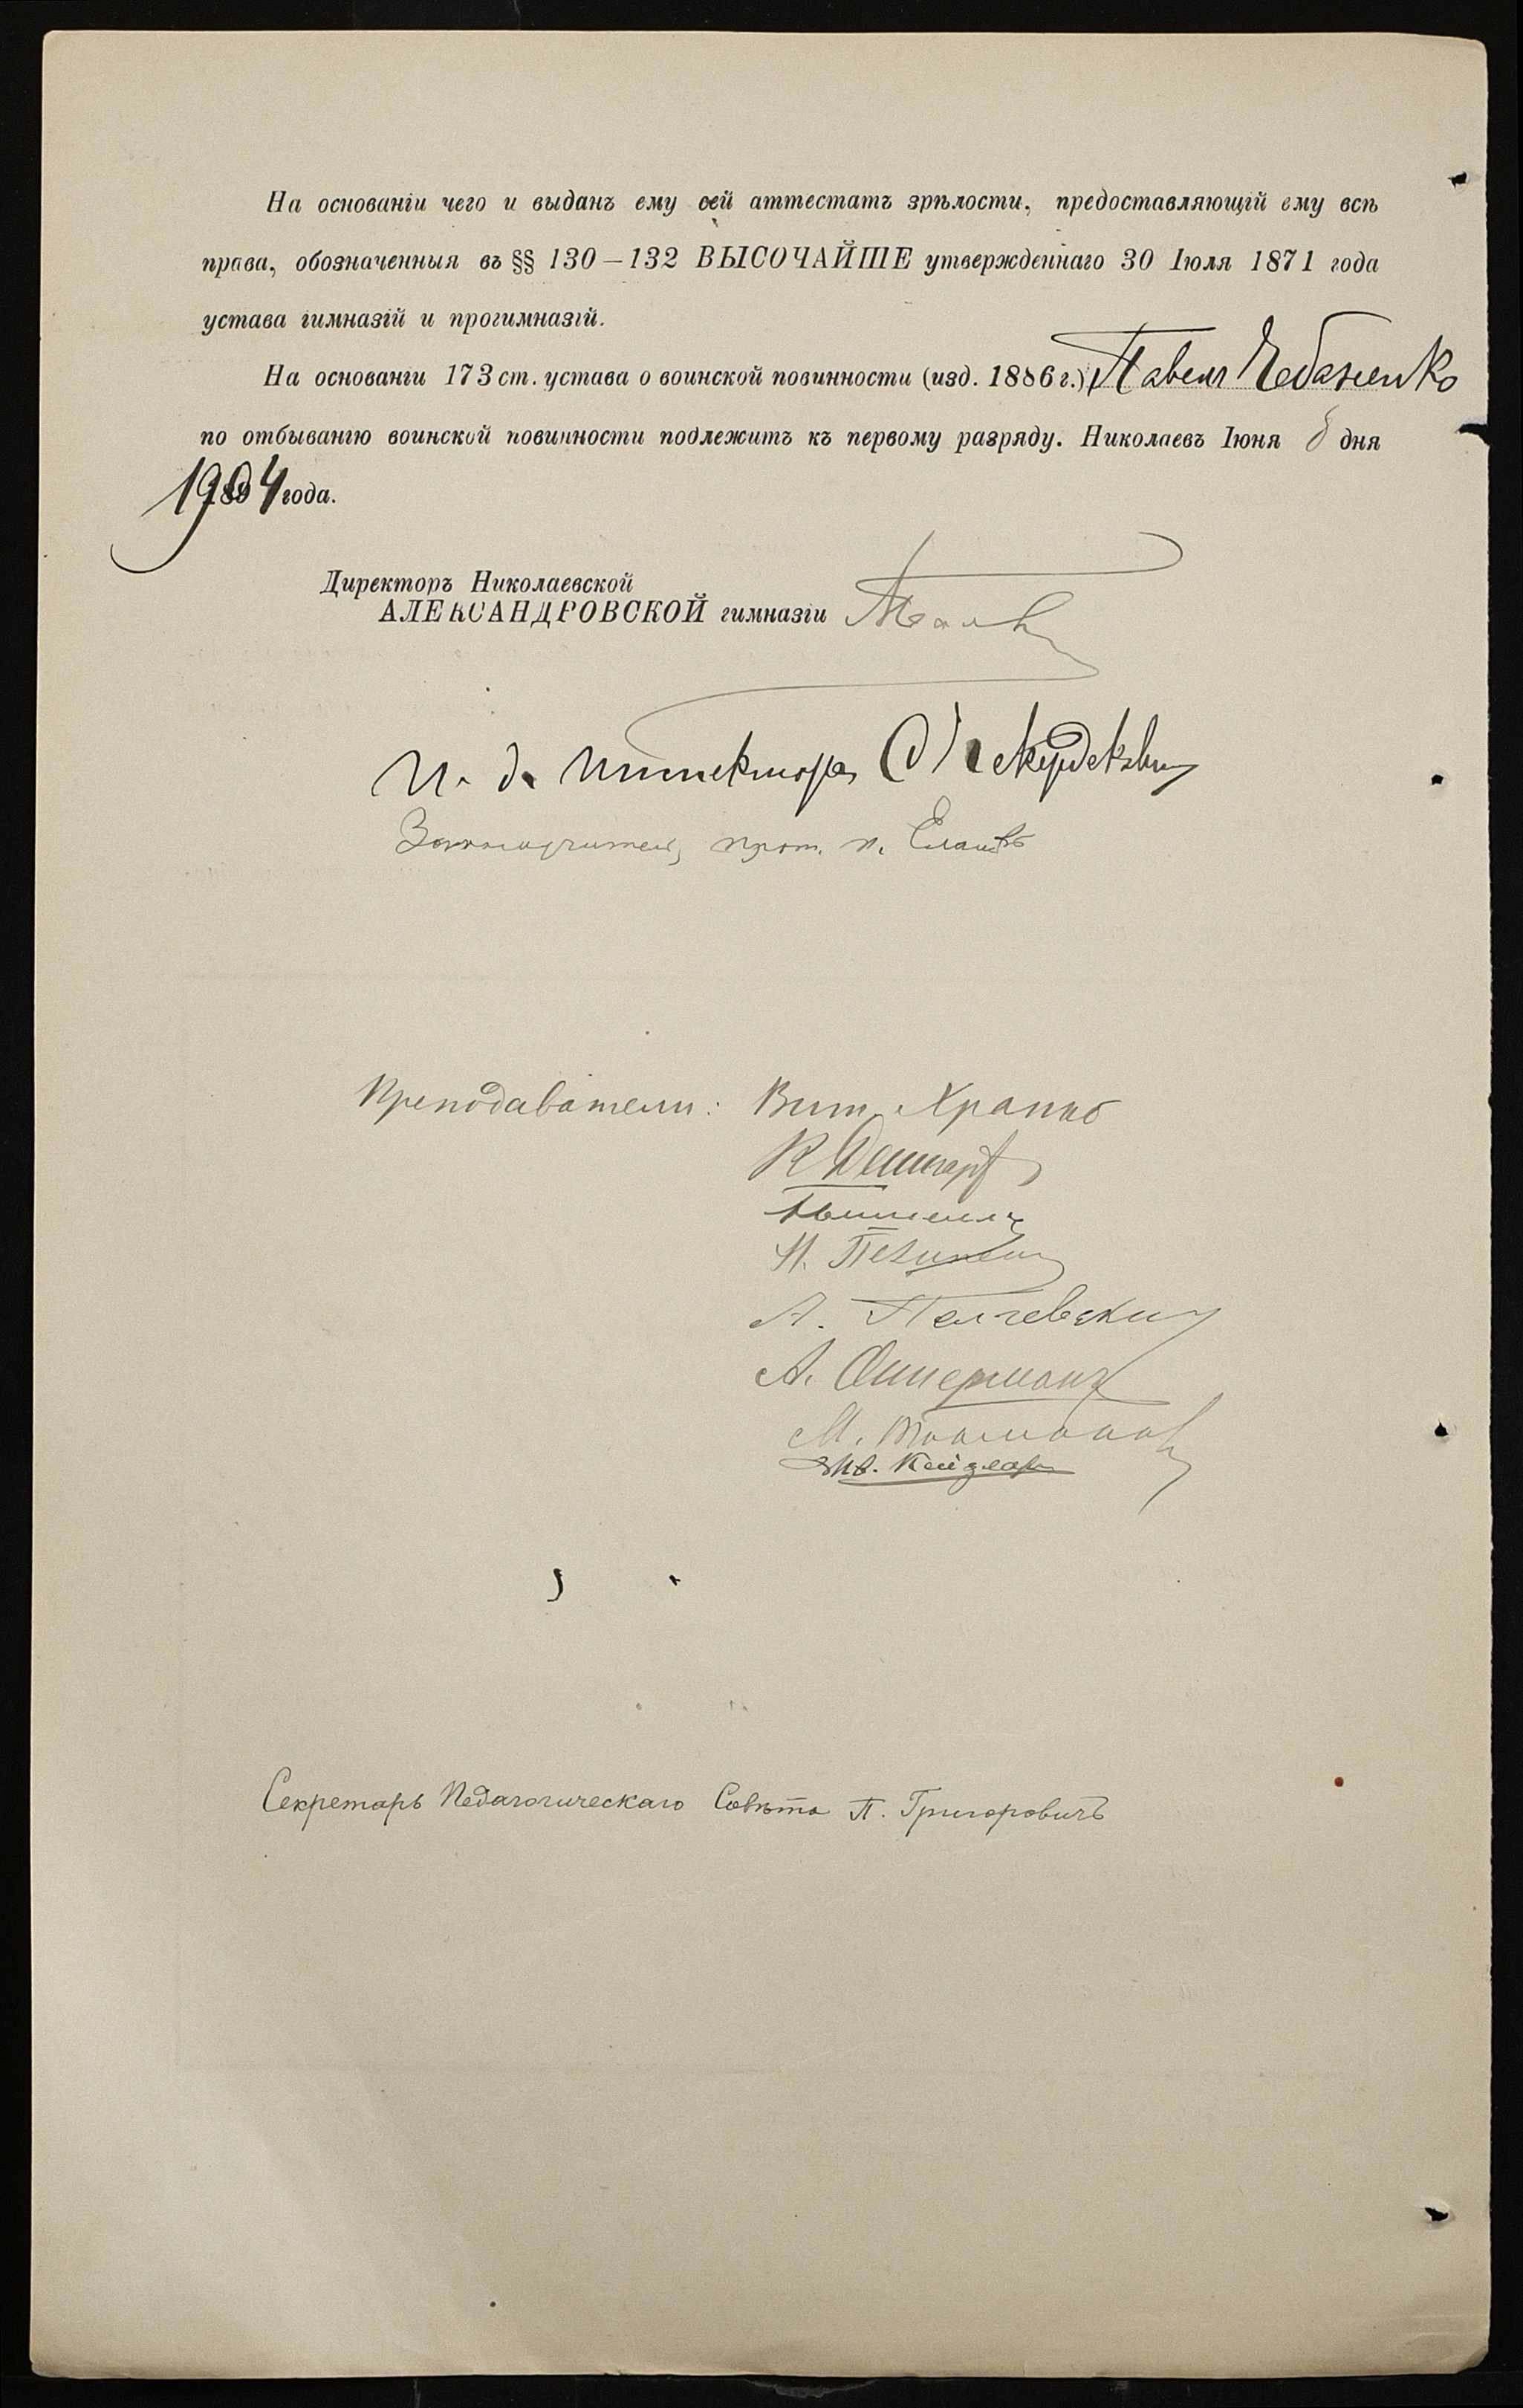 На основаніи чего и выданъ ему сей аттестатъ зрѣлости, предоставляющій ему всѣ
права, обозначенныя въ §§ 130–132 ВЫСОЧАЙШЕ утвержденнаго 30 Іюля 1871 года
устава гимназій и прогимназій.
На основаніи 173 ст. устава о воинской повинности (изд. 1886 г.) Павелъ Чебаненко
по отбыванію воинской повинности подлежитъ къ первому разряду. Николаевъ Іюня дня
1904 года.
Директоръ Николаевской
АЛЕКСАНДРОВСКОЙ гимназіи
И. д. Инспектора
Законоучитель, прот. П. Еланскій
Преподаватели: Вит. Храпко
К
Н.
А. Пелчевскій
А. Оттерманъ
М.
Ив. Кейзларъ
Секретарь Педагогическаго Совѣта П. Григоровичъ